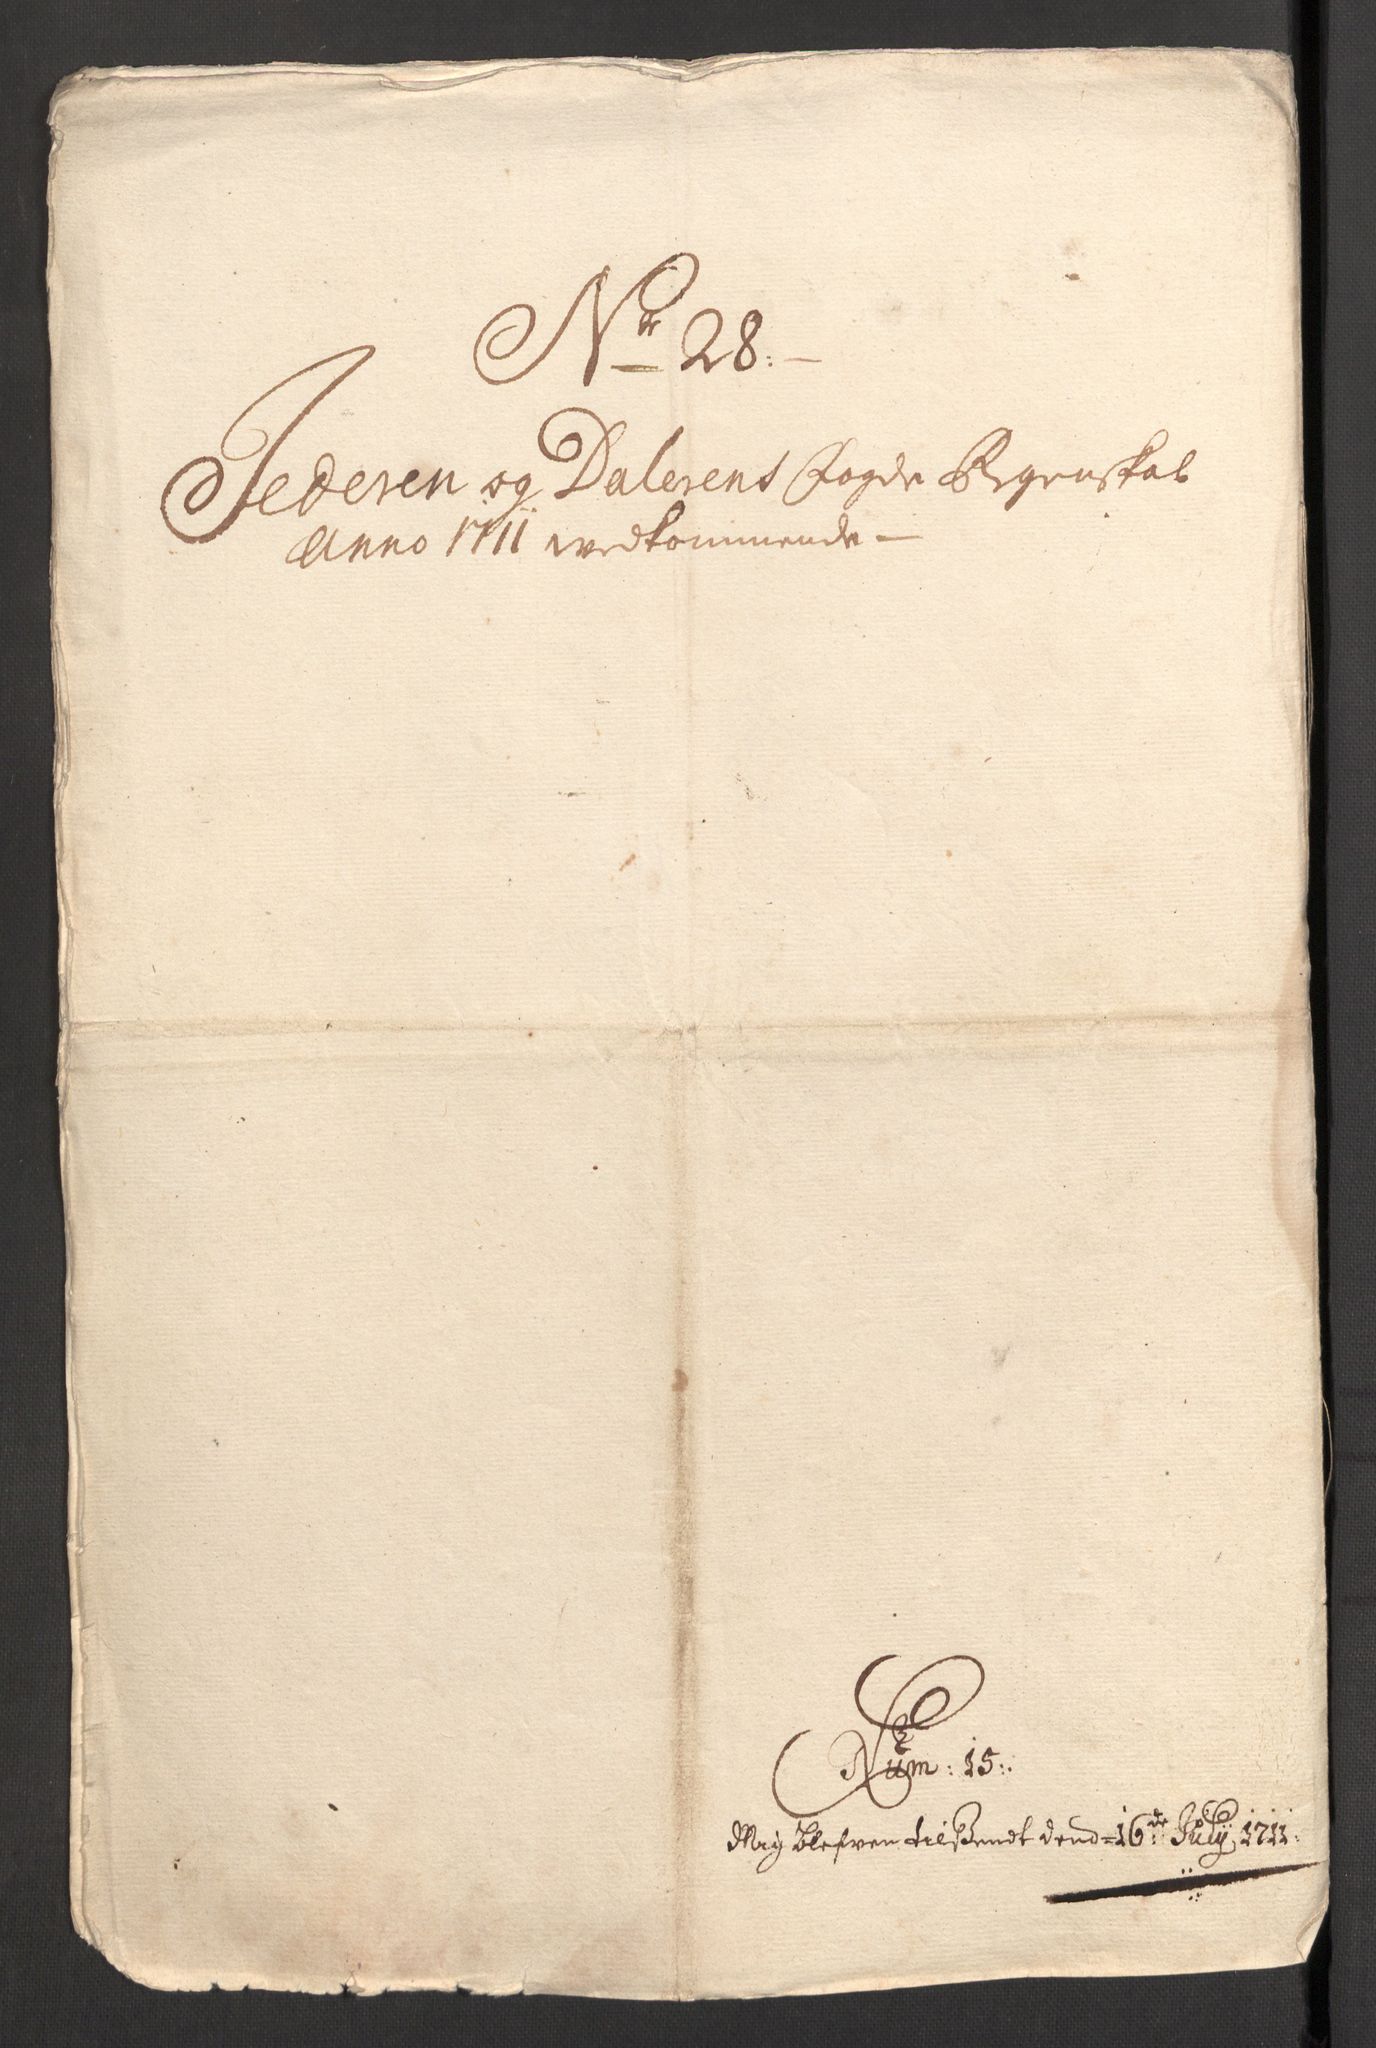 Nr 28.
Jederen og Dalerens Fogde Regenskab
Anno 1711 vedkommende
Num: 15:
Mig blefven tilsendt dend 16de July 1711.